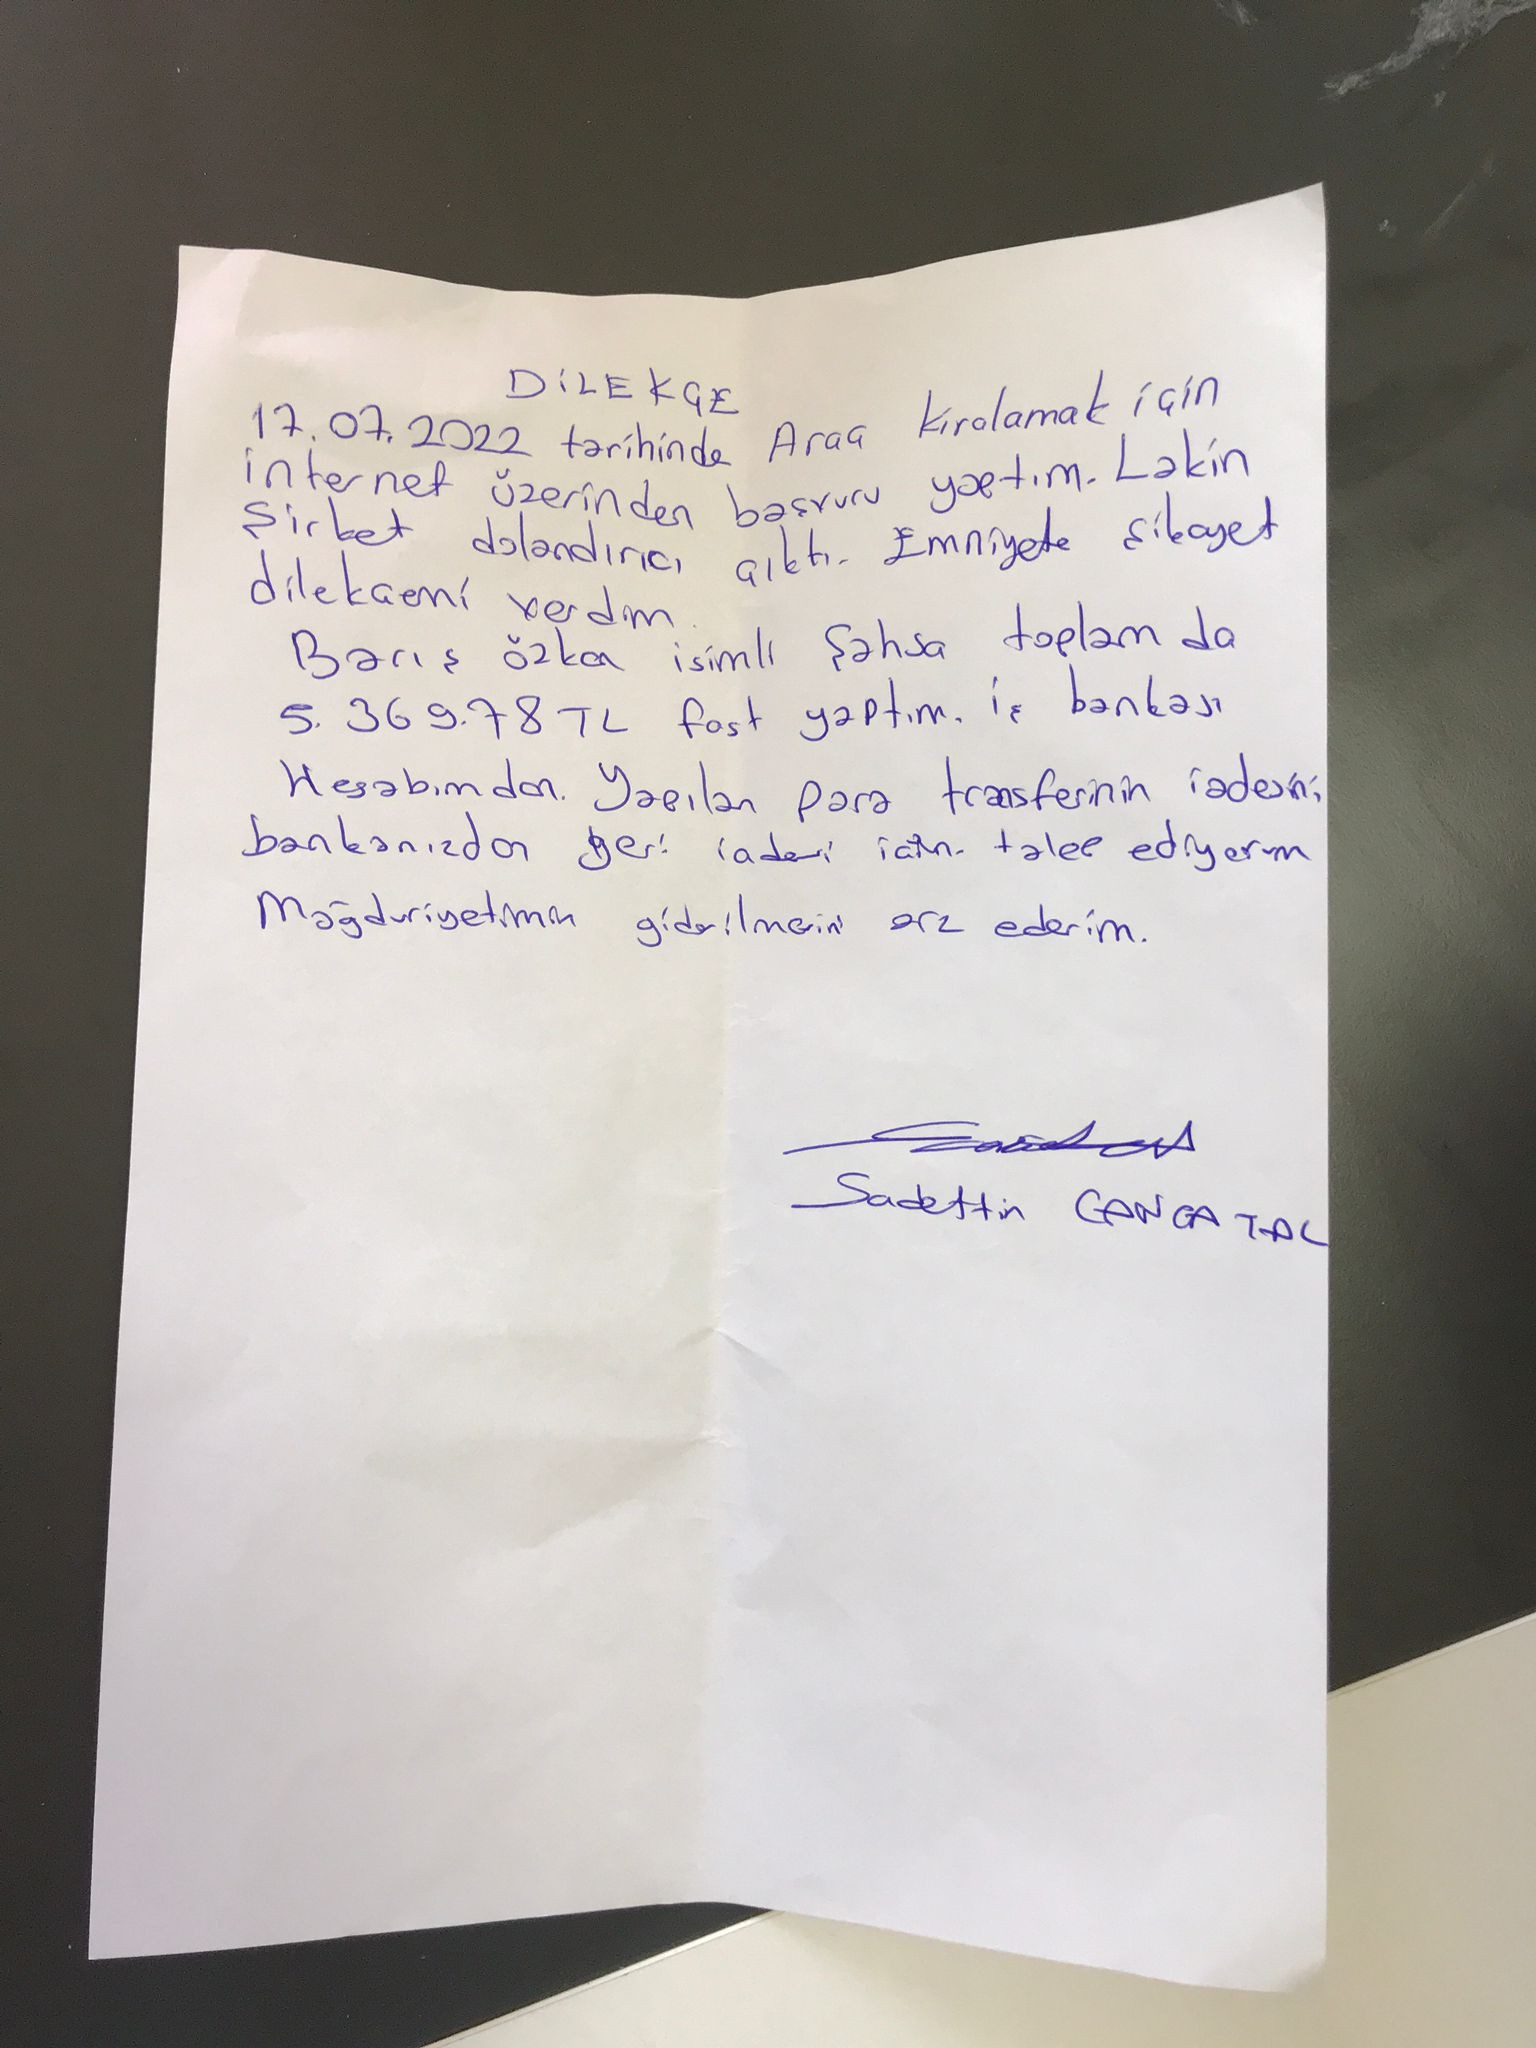 DİLEKÇE
17.07.2022 tarihinde Araç kiralamak için
internet üzerinden başvuru yaptım. Lakin
Şirket dolandırıcı çıktı. Emniyete şikayet
dilekçemi verdim.
Barış özkan isimli şahsa toplam da
5.369.78 TL fast yaptım. iş bankası
Hesabımdan. Yapılan para transferinin iadesini
bankanızdan geri iadesi için talep ediyorum
Mağduriyetimin giderilmesini arz ederim.
Sadettin CANGATAL